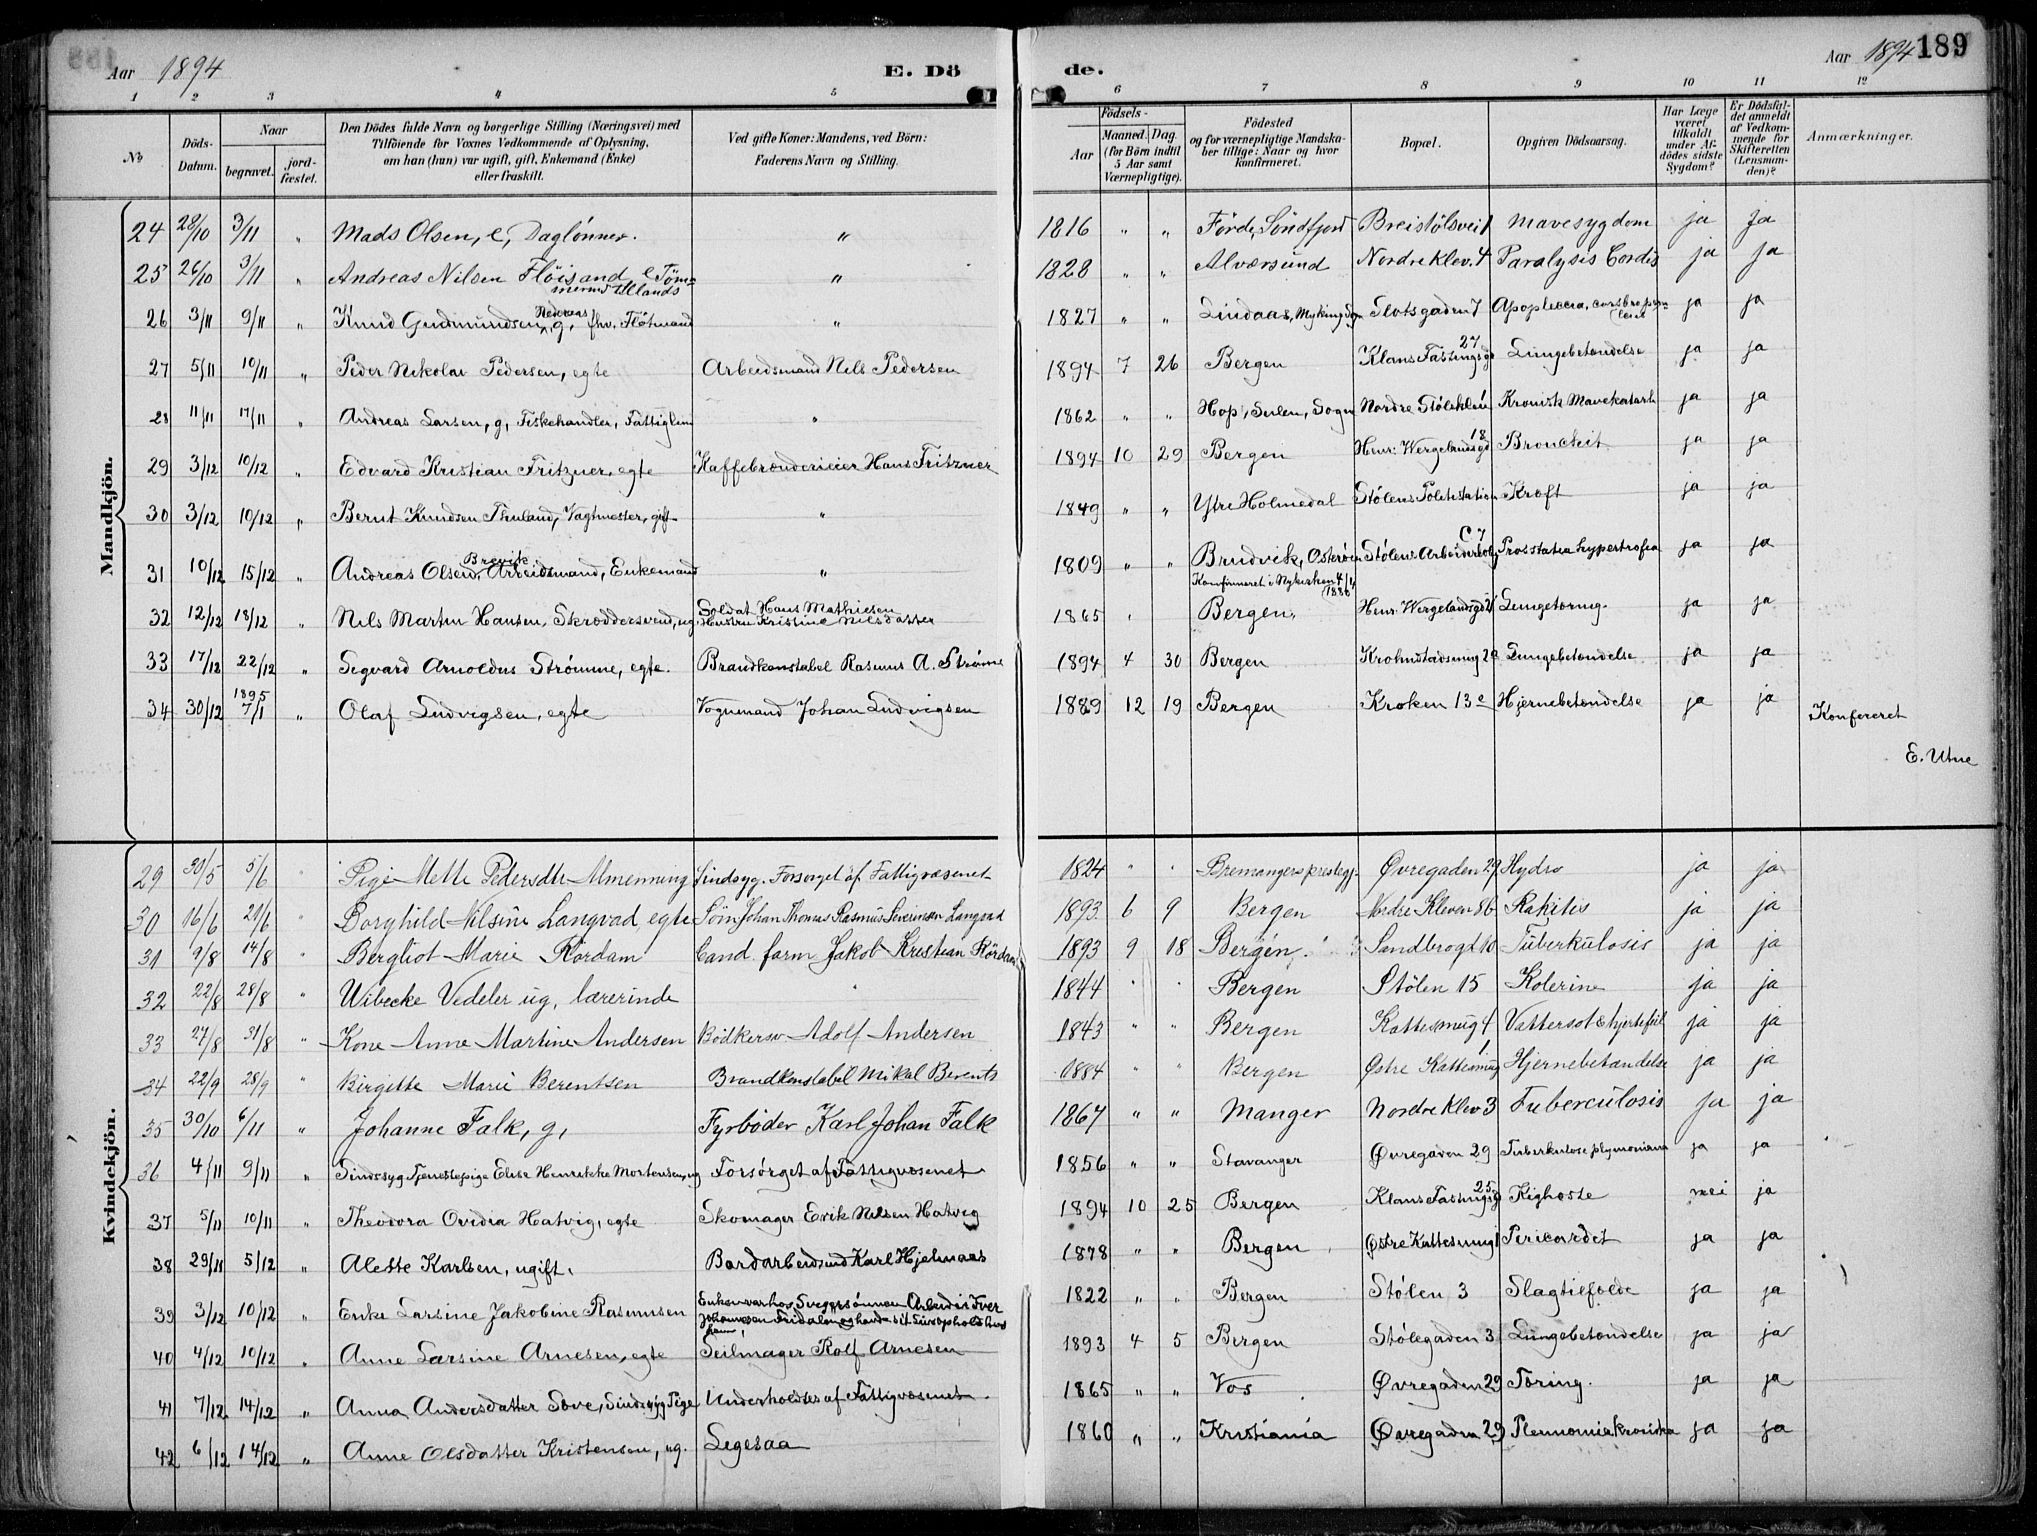 Aar 1894 E. Dö de. Aar 1894 189
1 2 3 4 5 6 7 8 9 10 11 12
No
Döds-Datum.
Naar begravet. jord-fæstet.
Den Dödes fulde Navn og borgerlige Stilling (Næringsvei) med Tilföiende for Voxnes Vedkommende af Oplysning, om han (hun) var ugift, gift, Enkemand (Enke) eller fraskilt.
Ved gifte Koner: Mandens, ved Börn: Faderens Navn og Stilling.
Födsels- Aar Maaned. Dag. (for Börn indtil 5 Aar samt Værnepligtige).
Födested og for værnepligtige Mandskaber tillige: Naar og hvor konfirmeret.
Bopæl.
Opgiven Dödsaarsag.
Har Læge været tilkaldt under Afdödes sidste Sygdom?
Er Dödsfaldet anmeldt af Vedkommende for Skifteretten (Lensmanden)?
Anmærkninger.
Mandkjön.
24 28/10 3/11 " Mads Olsen, e, Daglønner. " 1816 " " Førde, Søndfjord Breistølsvei 1 Mavesygdom ja ja
25 26/10 3/11 " Andreas Nilsen Fløisand e Tømmermd tillands " 1828 " " Alværsund Nordre klev. 4 Paralysis Cordis ja ja
26 3/11 9/11 " Knud Gudmundsen, g, fhv. Fløtmand " 1827 " " Lindaas, Myking Slotsgaden 7 Apoplexia ja ja
27 5/11 10/11 " Peder Nikolai Pedersen, egte Arbeidsmand Nils Pedersen 1894 7 26 Bergen Klaus Fastingsgd 27 Lungebetændelse ja ja
28 11/11 17/11 " Andreas Larsen, g, Fiskehandler, Fattiglem " 1862 " " Hop, Sulen, Sogn Nordre Stølekleiv Kronisk Mavekatarh ja ja
29 3/12 10/12 " Edvard Kristian Fritzner, egte Kaffebrænderieier Hans Fritzner 1894 10 29 Bergen Henr: Wergelandsgd 18 Bronckit ja ja
30 3/12 10/12 " Bernt Knudsen Thuland, Vagtmester, gift " 1849 " " Ytre Holmedal Stølens Politistation Kræft ja ja
31 10/12 15/12 " Andreas Olsen Brevik, Arbeidsmand, Enkemand " 1809 " " Brudvik, Osterøen Stølens Arbeiderbolig C 7 Prosstatia hypertrofia ja ja
32 12/12 18/12 " Nils Martin Hansen, Skræddersvend, ug Soldat Hans Mathiesen Hustru Kristine Nilsdatter 1865 " Konfirmeret i Nykirken Bergen, Henr: Wergelandsgd 21 Lungetæring. ja ja
33 17/12 22/12 " Segvard Arnoldus Strømme, egte. Brandkonstabel Rasmus A. Strøme 1894 4 30 Bergen Krohnstadsmug 2a Lungebetændelse ja ja
34 30/12 1895 7/1 " Olaf Ludvigsen, egte Vognmand Johan Ludvigsen 1889 12 19 Bergen Kroken 13c Hjernebetændelse ja ja
Konfereret
E. Utne
Kvindekjön.
29 30/5 5/6 " Pige Mette Pedersdtr Almenning Sindsyg. Forsørget af Fattigvæsenet 1824 " " Bremangers prestegj. Øvregaden 29 Hydro ja ja
30 16/6 21/6 " Borghild Nilsine Langvad, egte Johan Thomas Rasmus Severinsen Langvad 1893 6 9 Bergen Nordre Kleven 8b Rakitis ja ja
31 9/8 14/8 " Bergliot Marie Rørdam Cand. farm Jakob Kristian Rørdam 1893 9 18 Bergen. Sandbrogt 10 Tuberkulosis ja ja
32 22/8 28/8 " Wibecke Vedeler ug, lærerinde " 1844 " " Bergen Stølen 15 Kolerine ja ja
33 27/8 31/8 " Kone Anne Martine Andersen Bødkersv Adolf Andersen 1843 " " Bergen Kattesmug 4 Vattersot & hjertefeil ja ja
34 22/9 28/9 " Birgitte Marie Berentsen Brandkonstabel Mikal Berents 1884 " " Bergen Østre Kattesmug 1 Hjernebetændelse ja ja
35 30/10 6/11 " Johanne Falk, g, Fyrbøder Karl Johan Falk 1867 " " Manger Nordre Klev 3 Tuberculosis ja ja
36 4/11 9/11 " Sindssyg Tjenestepige Elise Henrikke Mortensen, ug Forsørget af Fattigvæsenet 1856 " " Stavanger Øvregaden 29 Tuberkulose plymonians ja ja
37 5/11 10/11 " Theodora Ovidia Hatvig, egte Skomager Erik Nilsen Hatvig 1894 10 25 Bergen Klaus Fastingsgd 25 Kighoste nei ja
38 29/11 5/12 " Alette Karlsen, ugift, Bordarbeidsmd Karl Hjelmaas 1878 " " Bergen Østre Kattesmug 1 Pericardit ja ja
39 3/12 10/12 " Enke Larsine Jakobine Rasmusen Enken var hos Svegersønnen Arbeider Iver Johannesen Fridal og havde sit Livsophold hos ham, 1822 " " Bergen Stølen 3 Slagtilfælde ja ja
40 4/12 10/12 " Anne Larsine Arnesen, egte Seilmager Rolf Arnesen 1893 4 5 Bergen Stølegaden 3 Lungebetændelse ja ja
41 7/12 14/12 " Anna Andersdatter Sove, Sindssyg Pige Underholdtes af Fattigvæsenet. 1865 " " Vos Øvregaden 29 Tæring. ja ja
42 6/12 14/12 " Anne Olsdatter Kristensen, ug. Legesaa 1860 " " Kristiania Øvregaden 29 Plenmonia kroniska ja ja